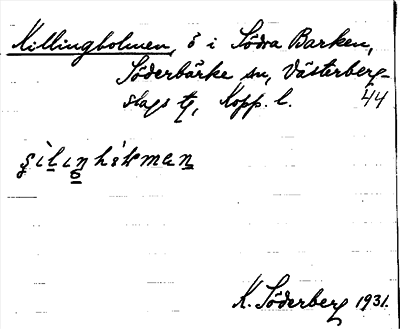 Killingholmen, ö i Södra Barken,
Söderbärke sn, Västerberg-
slags tg, Kopp. l. 44
K. Söderberg 1931.